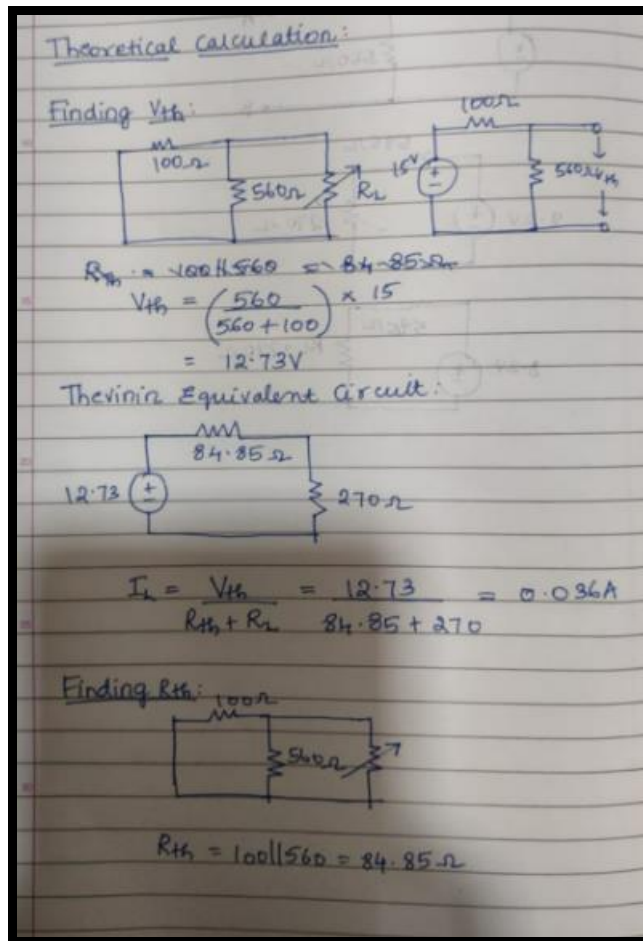 Theoretical Calculation:
Finding Vth:
100Ω
560Ω
RL
100Ω
15V
560Ω Vth
Rth = 100||560 = 84.85Ω
Vth = (560 / 560+100) × 15
= 12.73V
Thevinin Equivalent Circuit:
84.85Ω
12.73
270Ω
IL = Vth / Rth + RL = 12.73 / 84.85 + 270 = 0.036A
Finding Rth:
100Ω
560Ω
Rth = 100||560 = 84.85Ω